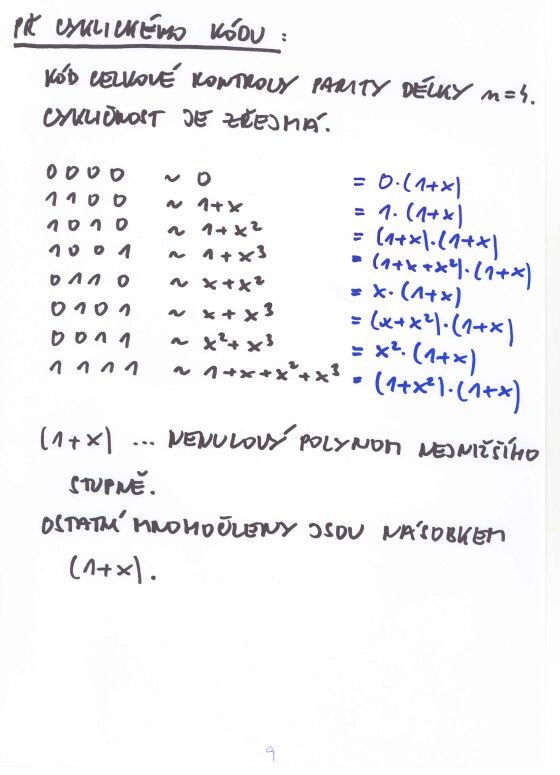 PŘ CYKLICKÉHO KÓDU :
KÓD CELKOVÉ KONTROLY PARITY DÉLKY n=4.
CYKLIČNOST JE ZŘEJMÁ.
0 0 0 0 ~ 0 = 0·(1+x)
1 1 0 0 ~ 1+x = 1·(1+x)
1 0 1 0 ~ 1+x² = (1+x)·(1+x)
1 0 0 1 ~ 1+x³ = (1+x+x²)·(1+x)
0 1 1 0 ~ x+x² = x·(1+x)
0 1 0 1 ~ x+x³ = (x+x²)·(1+x)
0 0 1 1 ~ x²+x³ = x²·(1+x)
1 1 1 1 ~ 1+x+x²+x³ = (1+x²)·(1+x)
(1+x) ... NENULOVÝ POLYNOM NEJNIŽŠÍHO
STUPNĚ.
OSTATNÍ MNOHOČLENY JSOU NÁSOBKEM
(1+x).
9